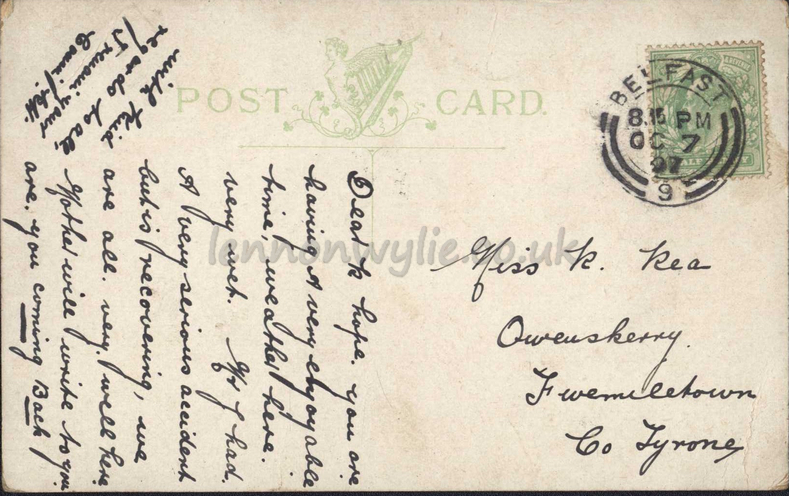 POST CARD.
BELFAST
8.15 PM
OC 7
07
9
Dear K hope. you are
having A very enjoyable
time, weather here.
very wet. Mr J had.
A very serious accident
but is recovering, we
are all. very. well here
Mother will write to you
are. you coming Back
with kind
regards to all,
I remain your
lennonwylie.co.uk
Miss K. Rea
Owenskerry.
Fivemiletown
Co Tyrone